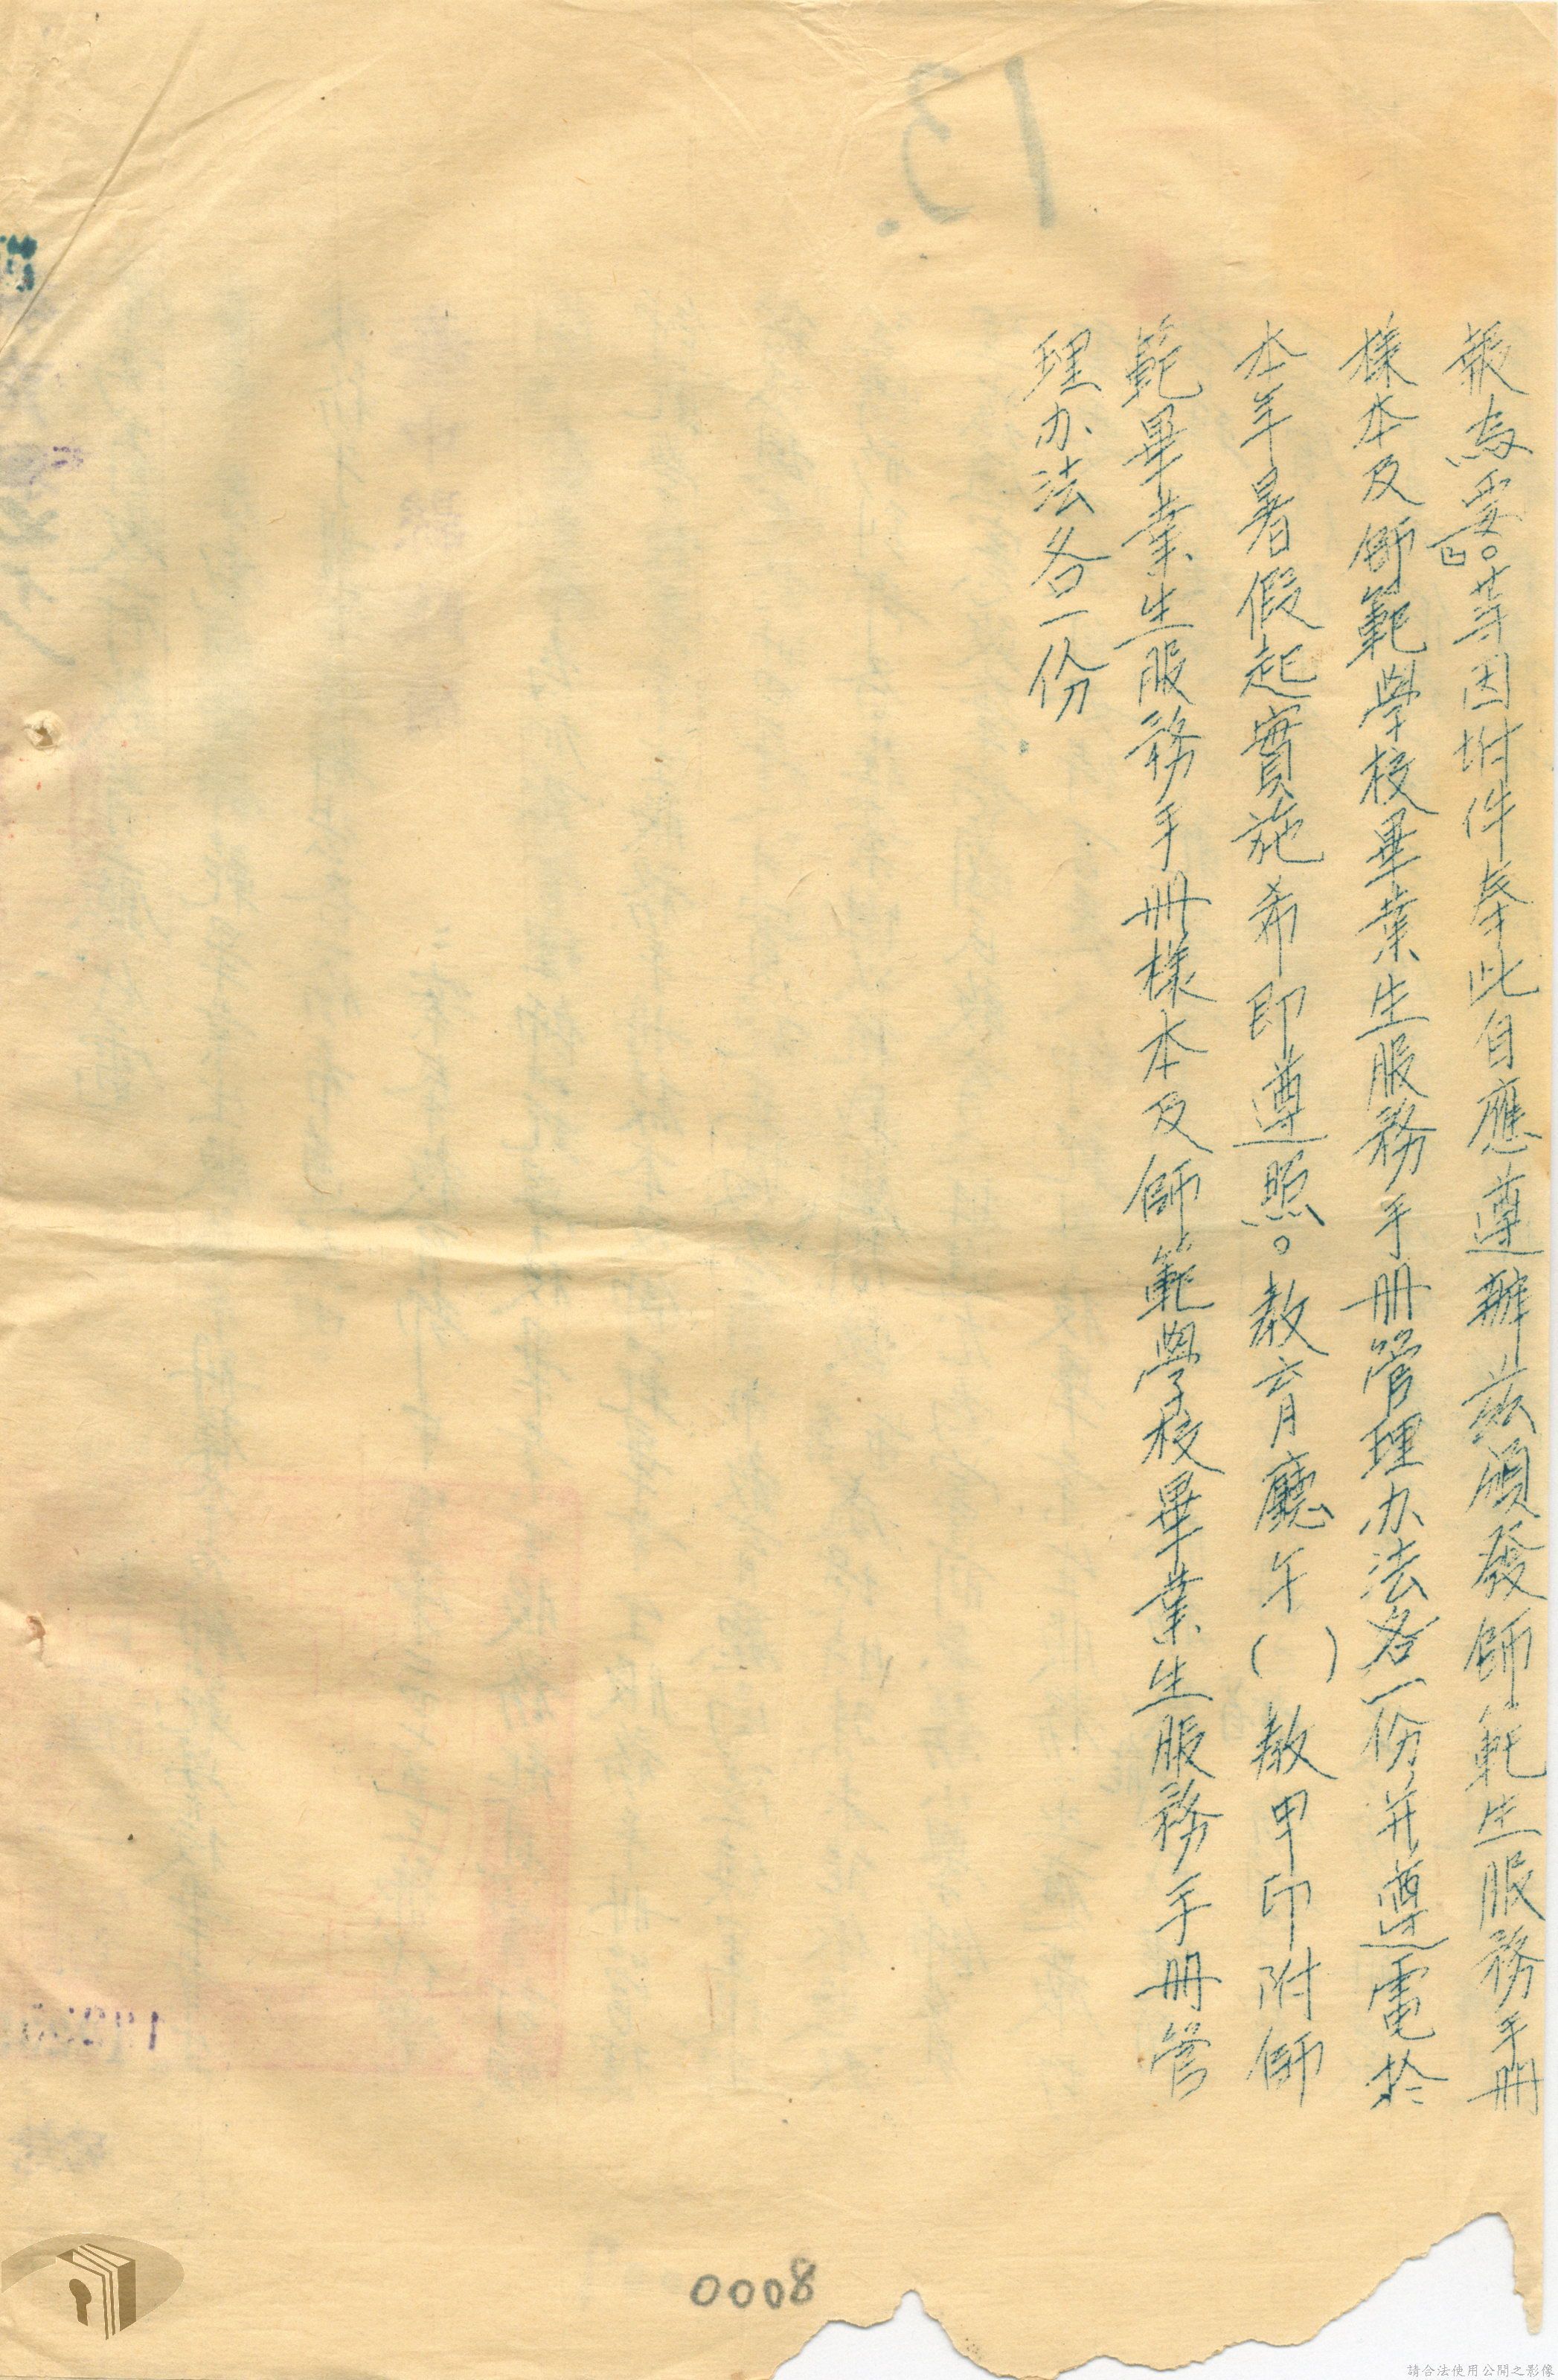 報為要。』等因附件奉此自應遵辦茲頒發師範生服務手冊
樣本及師範學校畢業生服務手冊管理办法各一份并遵電於
本年暑假起實施希即遵照。教育廳午（ ）教甲印附師
範畢業生服務手冊樣本及師範學校畢業生服務手冊管
理办法各一份
0008
請合法使用公開之影像